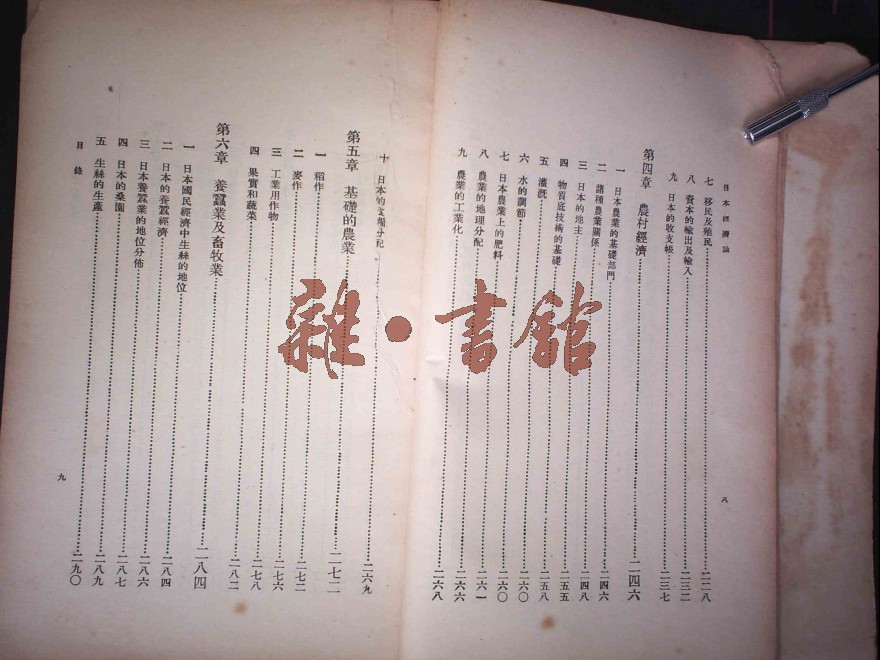 日本經濟論
七 移民及殖民 二二八
八 資本的輸出及輸入 二三二
九 日本的收支帳 二三七
第四章 農村經濟 二四六
一 日本農業的基礎部門 二四六
二 諸種農業關係 二四八
三 日本的地主 二五五
四 物質底技術的基礎 二五八
五 灌漑 二六〇
六 水的調節 二六〇
七 日本農業上的肥料 二六一
八 農業的地理分配 二六六
九 農業的工業化 二六八
八
十 日本的 分配 二六九
第五章 基礎的農業 二七二
一 稻作 二七二
二 麥作 二七六
三 工業用作物 二七八
四 果實和蔬菜 二八二
第六章 養蠶業及畜牧業 二八四
一 日本國民經濟中生絲的地位 二八四
二 日本的養蠶經濟 二八六
三 日本養蠶業的地位分佈 二八七
四 日本的桑園 二八九
五 生絲的生產 二九〇
目錄
九
雜·書館